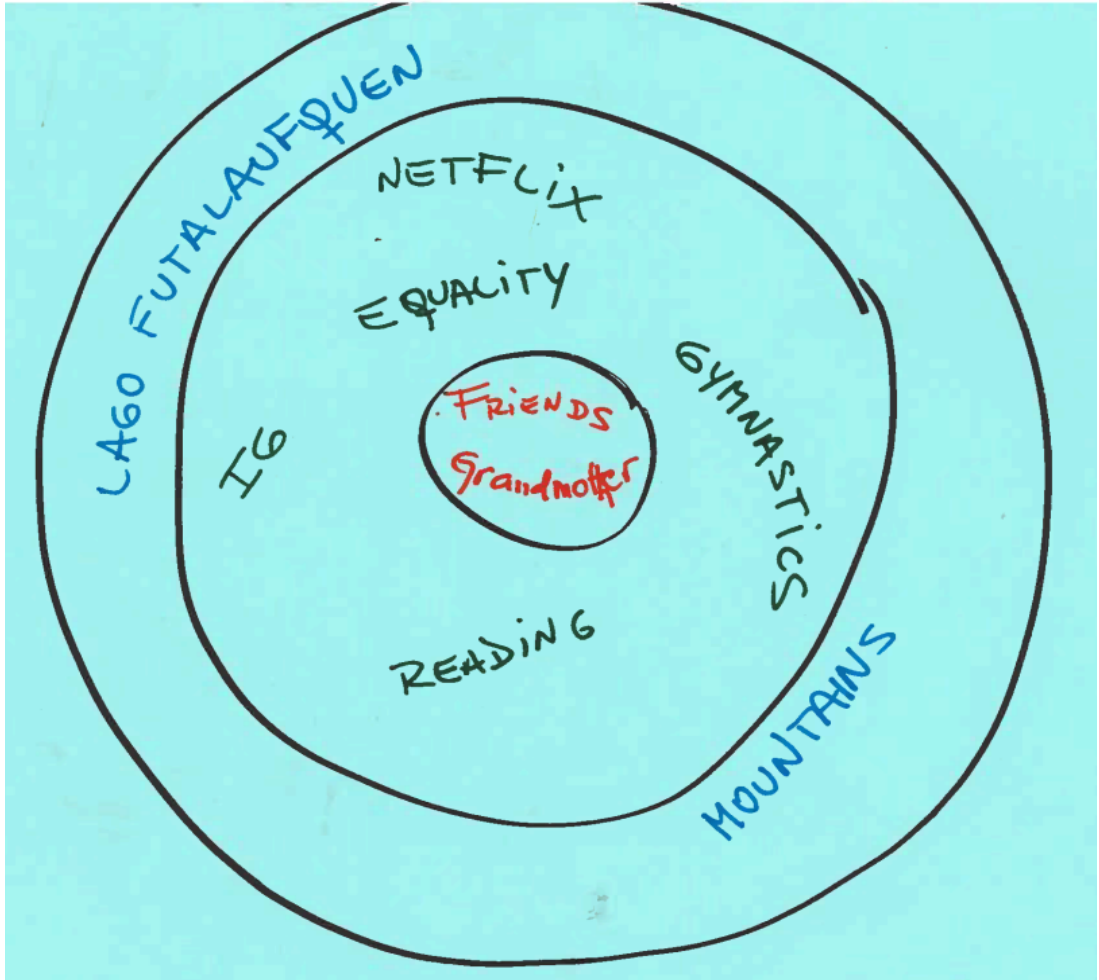 LAGO FUTALAUFQUEN
NETFLiX
EQUALiTY
FRiENDS
Grandmother
GYMNASTiCS
IG
READiNG
MOUNTAINS